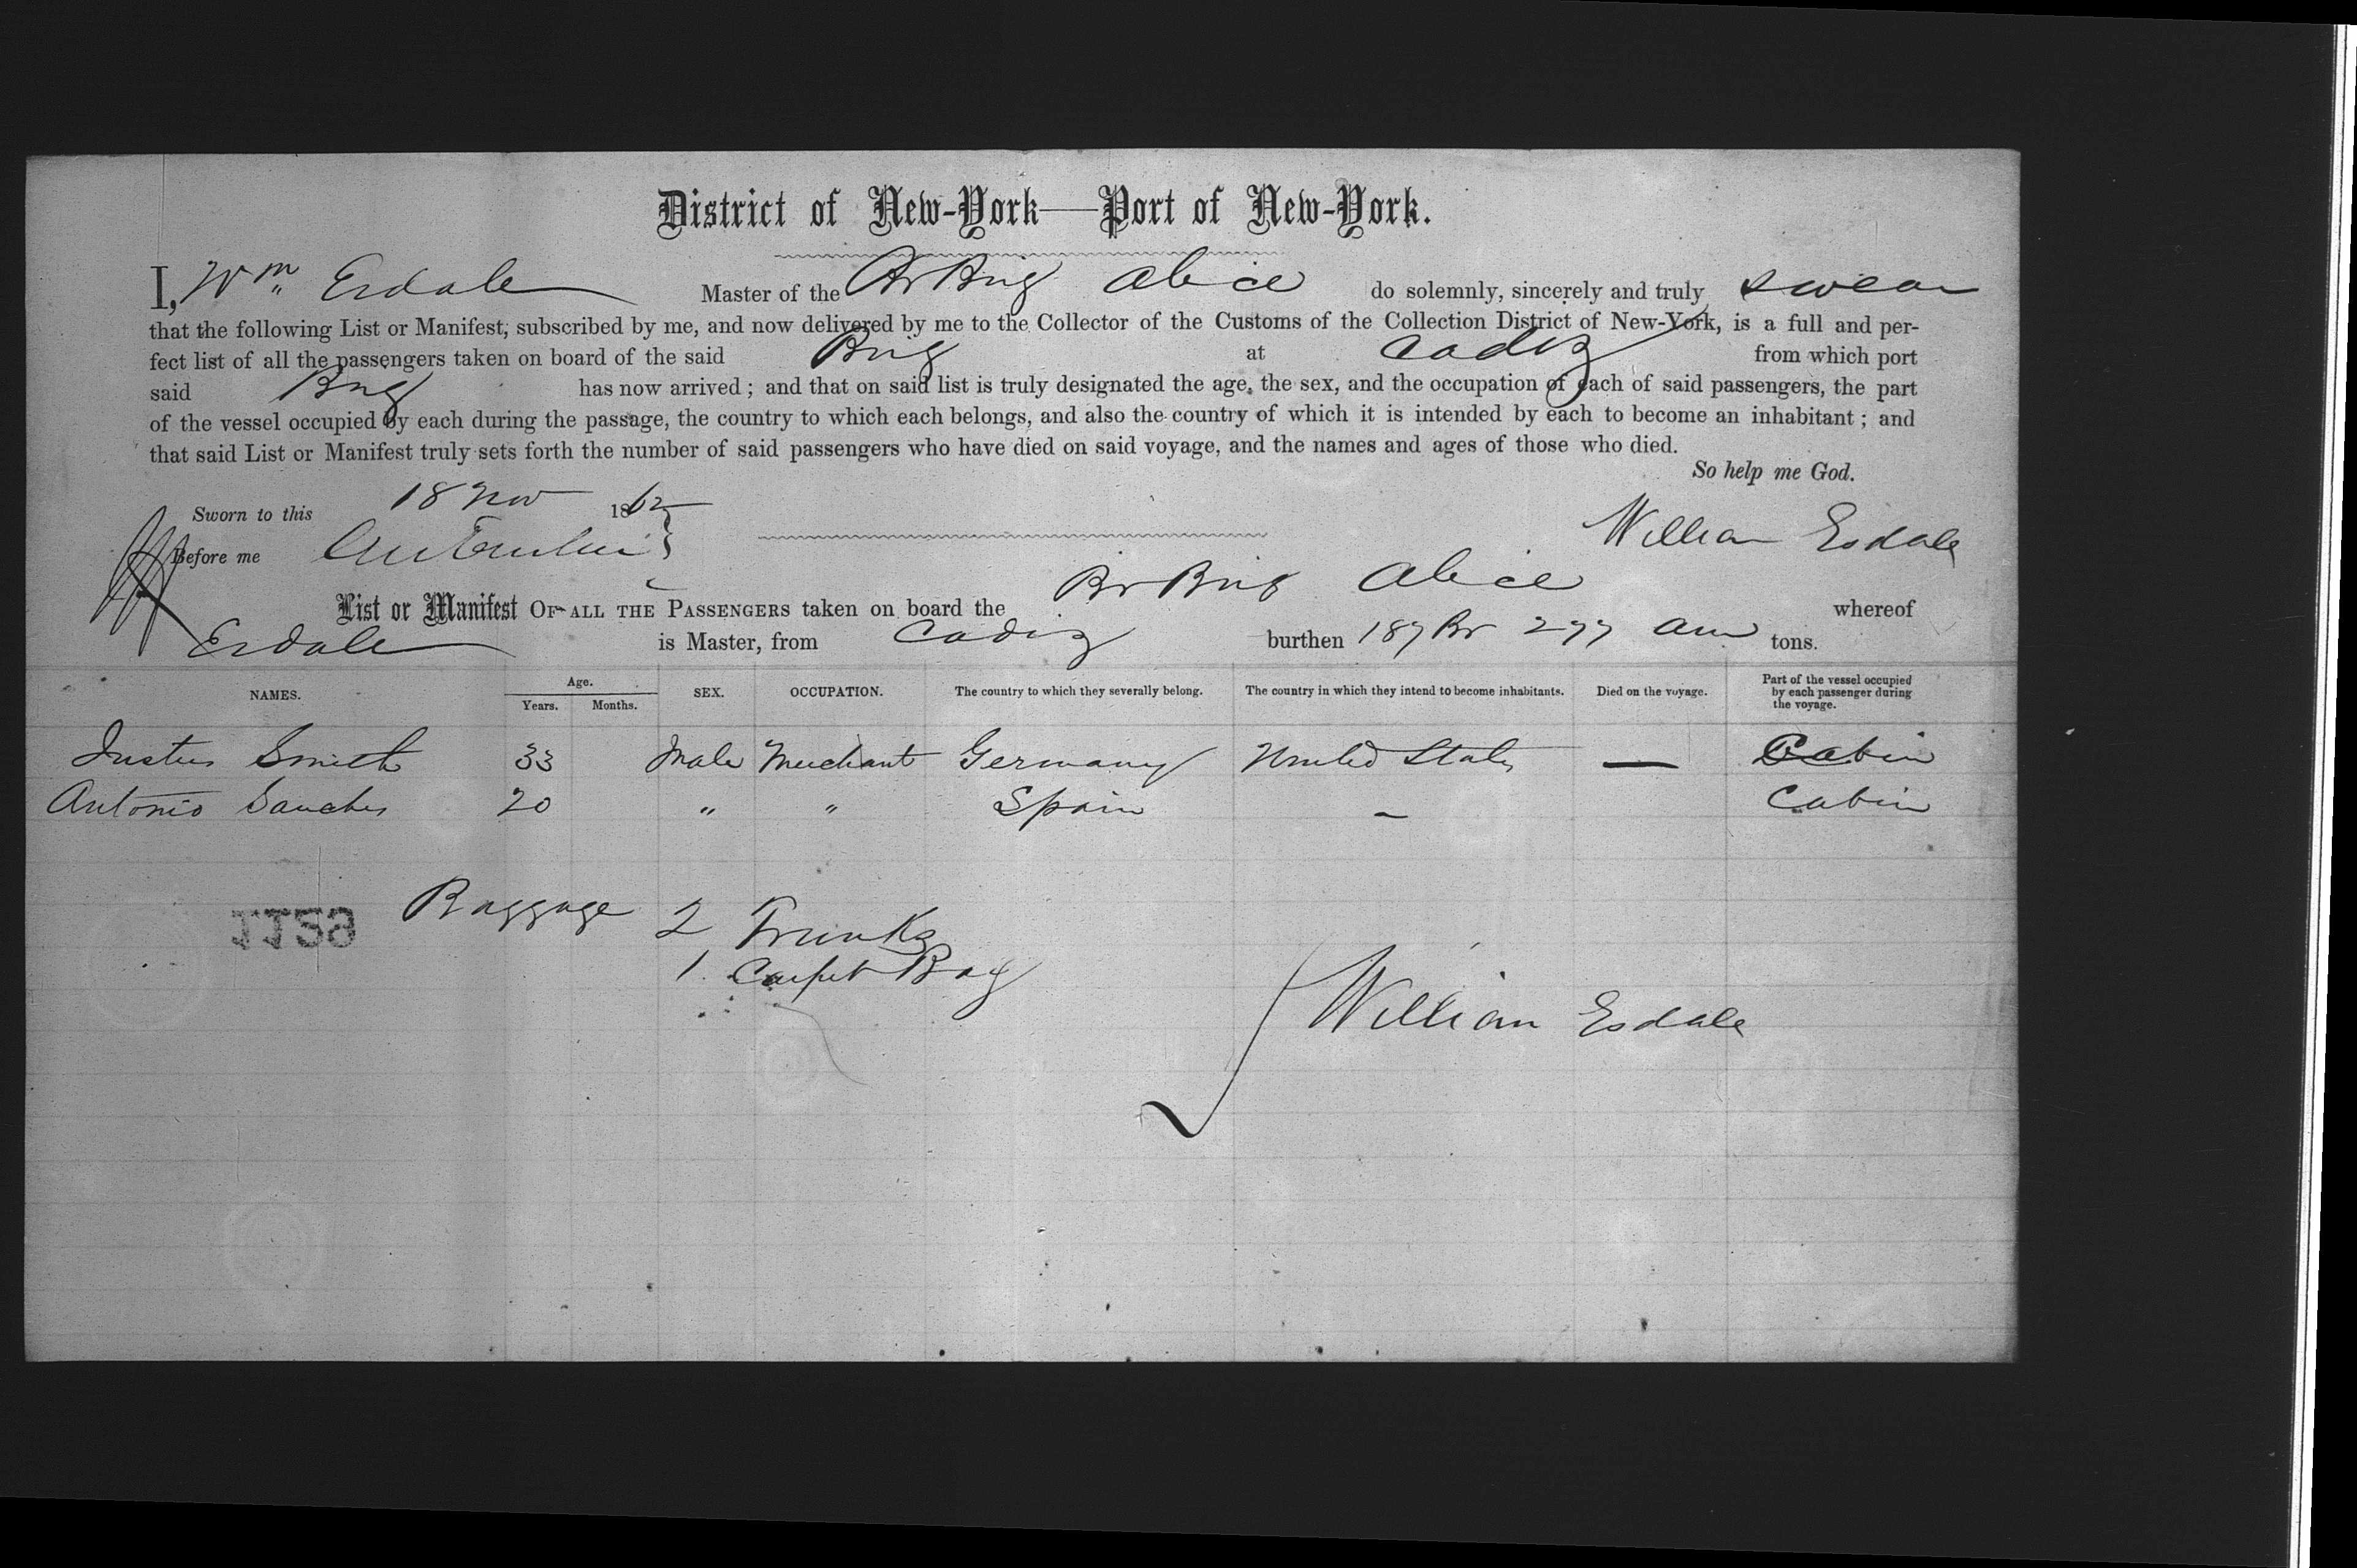 District of New-York—Port of New-York.
I, Wm Esdale Master of the Br Brig Alice do solemnly, sincerely and truly swear
that the following List or Manifest, subscribed by me, and now delivered by me to the Collector of the Customs of the Collection District of New-York, is a full and per-
fect list of all the passengers taken on board of the said Brig at Cadiz from which port
said Brig has now arrived; and that on said list is truly designated the age, the sex, and the occupation of each of said passengers, the part
of the vessel occupied by each during the passage, the country to which each belongs, and also the country of which it is intended by each to become an inhabitant; and
that said List or Manifest truly sets forth the number of said passengers who have died on said voyage, and the names and ages of those who died.
So help me God.
Sworn to this 18 Nov 1862
William Esdale
Before me
List or Manifest OF ALL THE PASSENGERS taken on board the Br Brig Alice whereof
Esdale is Master, from Cadiz burthen 187 Br 277 Am tons.
NAMES. Age. Years. Months. SEX. OCCUPATION. The country to which they severally belong. The country in which they intend to become inhabitants. Died on the voyage. Part of the vessel occupied by each passenger during the voyage.
Justus Smith 33 Male Merchant Germany United States — Cabin
Antonio Sanches 20 " " Spain - Cabin
Baggage 2 Trunks
1 Carpet Bag
1129
William Esdale